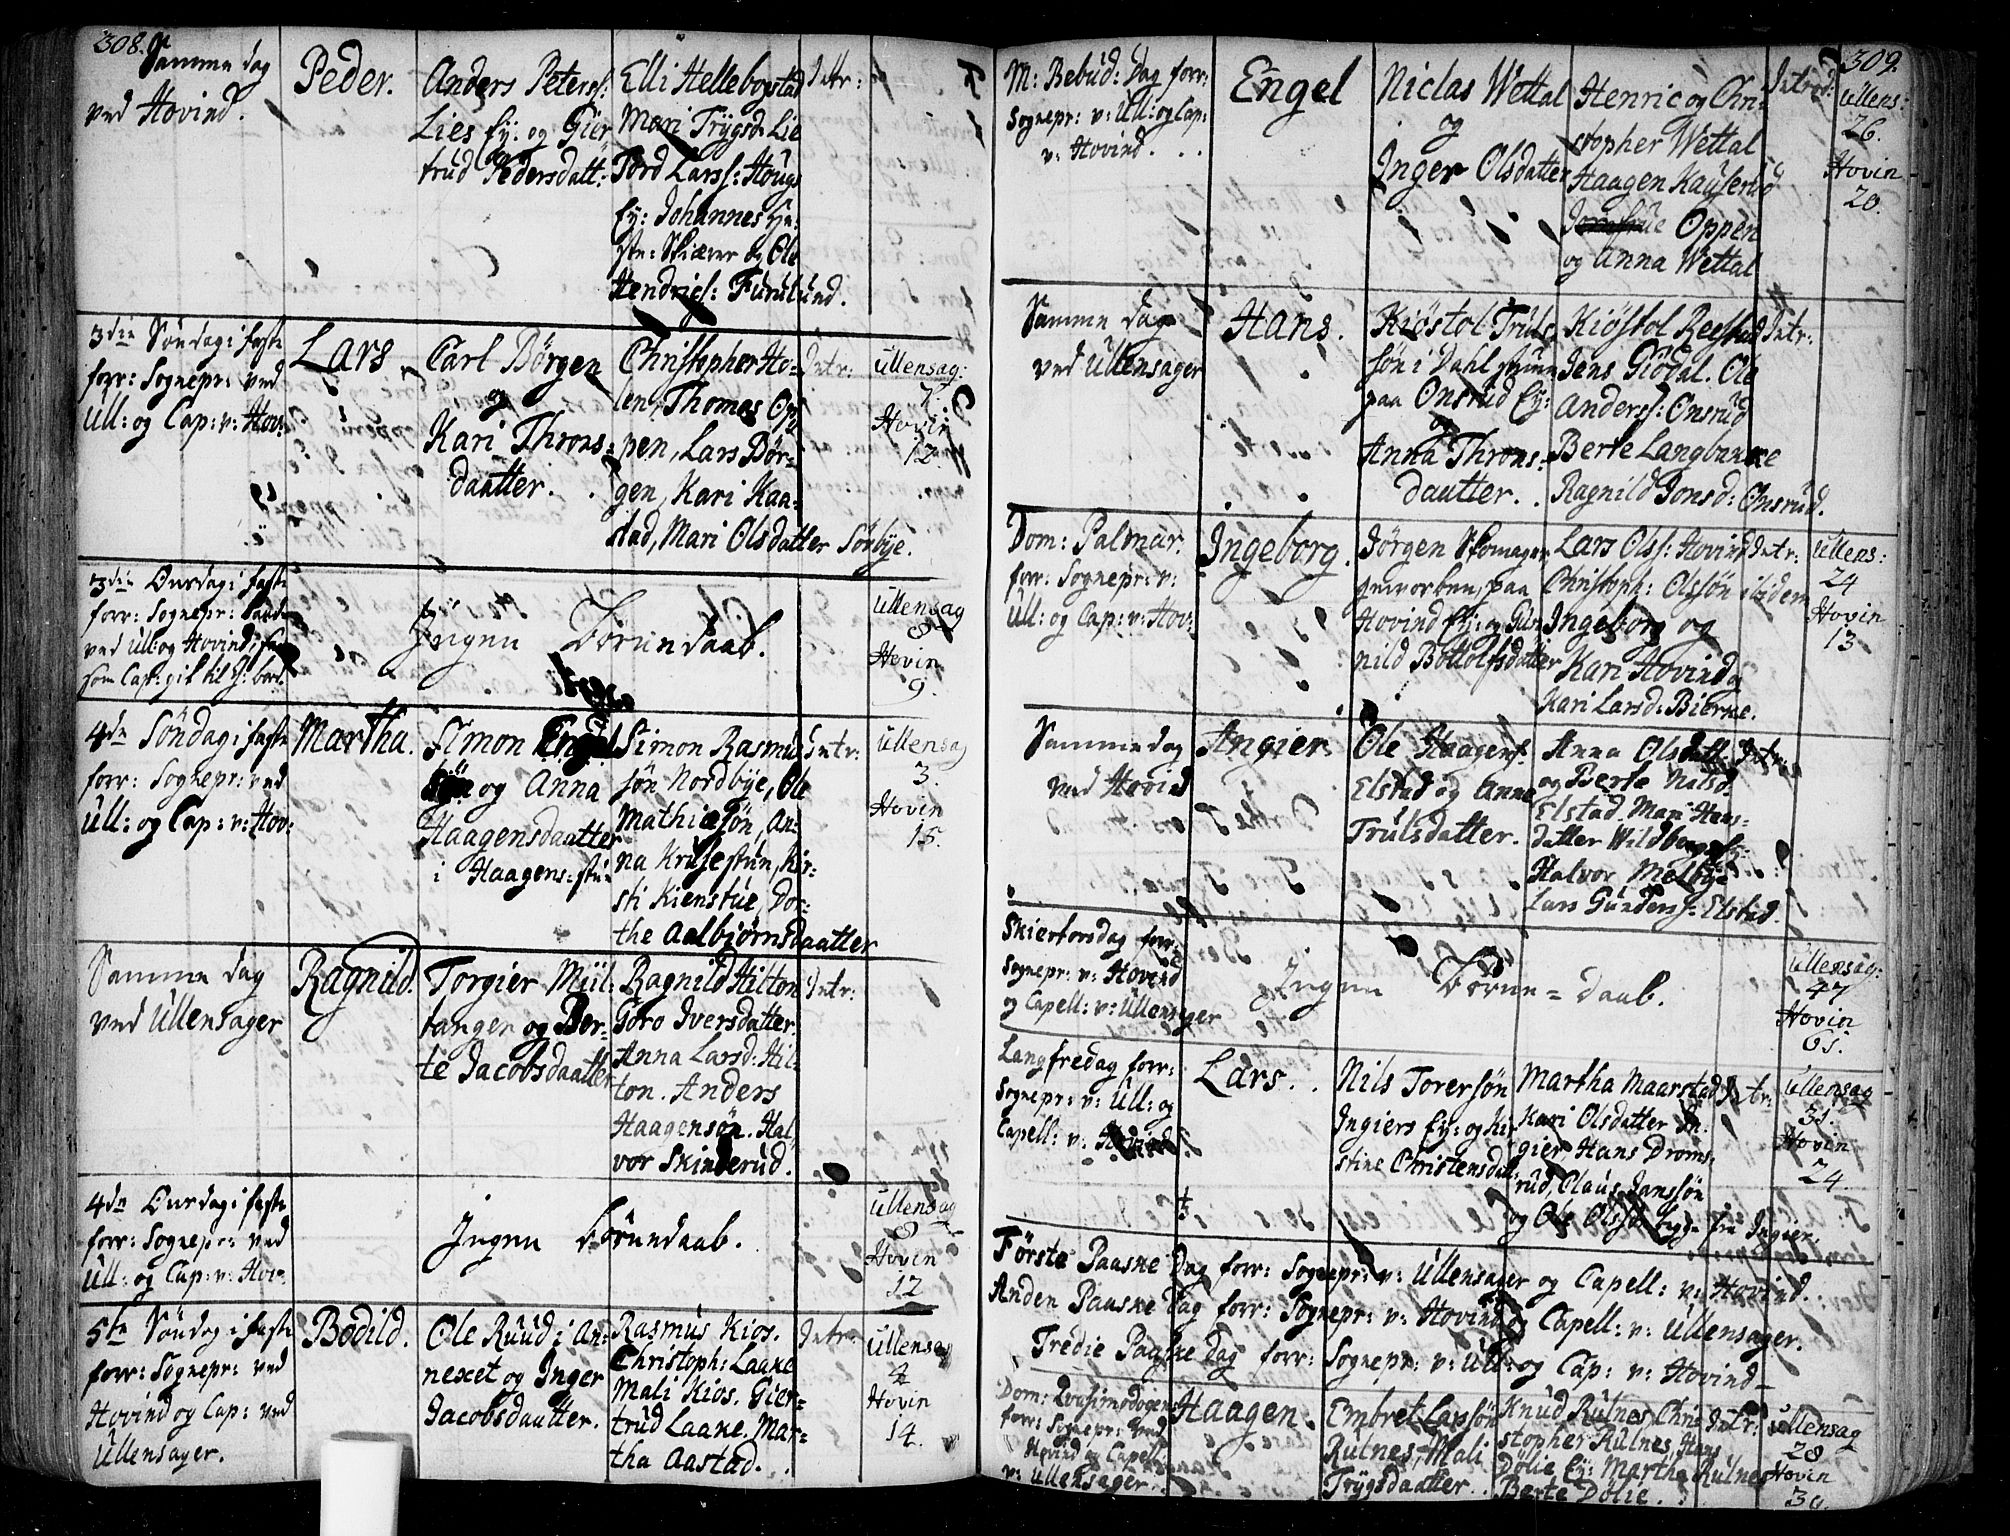 308.
Samme dag
ved Hovind.
Peder.
Anders Peters:
Lies Ey: og Gier
trud Pedersdatt:
Elli Hellebogstad
Mari Trÿgsd: Lie
Tord Larss: Houg
Ey: Johannes
Skiærer og Ole
Hendrics: Furulund.
Intr:
3die Söndag i faste
forr: Sognepr: ved
Ull: og Cap: v: Hov:
Lars
Carl Börgen
og
Kari Throns=
daatter.
Christopher Ho=
len, Thomas Op=
pen, Lars Bör=
gen, Kari Kaa=
stad, Mari Olsdatter Sörbÿe.
Intr:
Ullensag:
7.
Hovin
12.
3die Onsdag i faste
forr: Sognepr:
ved Ull: og Hovind,
som Cap: gik til
Ingen Börundaab.
Ullensag
8
Hovin
9.
4de Söndag i faste
forr: Sognepr: ved
Ull: og Cap: v: Hov:
Martha.
Simon Engel
sön og Anna
Haagensdaatter
i Haagens:stu
Simon Rasmus
sön Nordbÿe, Ole
Mathiesön, An=
na Krusestuen, Kir=
sti Kienstue, Dor=
the Aalbjörnsdaatter
Intr:
Ullensag
3.
Hovin
15.
Samme dag
ved Ullensager
Ragnild.
Torgier Mül:
tanger og Ber=
te Jacobsdaatter
Ragnild Hilton
Goro Iversdatter
Anna Larsd: Hil=
ton. Anders
Haagensön. Hal=
vor Skinderud.
Intr:
4de Onsdag i faste
forr: Sognepr: ved
Ull: og Cap: v: Hov:
Ingen Börundaab.
Ullensag
8
Hovin
12
5te Söndag i faste
forr: Sognepr: ved
Hovind og Cap: ved
Ullensager.
Bodild.
Ole Ruud i An:
nexet og Inger
Jacobsdaatter.
Rasmus Kios.
Christoph: Laake
Mali Kios. Gier=
trud Laake. Mar=
tha Aastad.
Intr:
Ullensag
Hovin
14.
309.
M: Bebud: Dag forr:
Sognepr: v: Ull: og Cap:
v: Hovind.
Engel
Niclas Wettal
og
Inger Olsdatter
Henric og Chri=
stopher Wettal
Haagen Kaÿserud
Oppen
og Anna Wettal
Introd:
Ullens:
26.
Hovin
20.
Samme dag
ved Ullensager
Hans.
Kiöstol Truls
sön i Dahl
paa Onsrud Ey:
og
Anna Throns=
daatter.
Kiöstol Reestad
Jens Giödal. Ole
Anderss: Onsrud
Berte Langbakke
Ragnild Jonsd: Onsrud.
Intr:
Dom: Palmar.
forr: Sognepr: v:
Ull: og Cap: v: Hov:
Ingeborg.
Jörgen Skomager
paa
Hovind Ey: og Gun
nild Bottolfsdatter
Lars Olss: Hovind
Christoph: Olssön ibidem
Ingeborg og
Kari Hovind og
Kari Larsd: Bierke.
Intr:
Ullens:
24
Hovin
13.
Samme dag
ved Hovind
Angier.
Ole Haagens:
Elstad og Anne
Trulsdatter.
Anna Olsdatt:
og Berte Nilsd.
Elstad. Mari Hans=
datter
Halvor Melbÿe
Lars Gunderss: Elstad.
Intr:
Skiertorsdag forr:
Sognepr: v: Hovind
og Capell: v: Ullensager
Ingen Börne=daab.
Ullensag:
47
Hovin
61.
Langfredag forr:
Sognepr: v: Ull: og
Capell: v: Hovind
Lars.
Nils Torersön
Ingiers Ey: og Kir
stine Christensdat:
Martha Maarstad
Kari Olsdatter In
gier Hans Droms=
rud, Olaus Janssön
og Ole Ingier.
Intr:
Ullensag
31.
Hovin
24.
Förste Paaske Dag forr: Sognepr: v: Ullensager og Capell: v: Hovind.
Anden Paaske Dag forr: Sognepr: v: Hovind og Capell: v: Ullensager.
Tredie Paaske Dag forr: Sognepr: v: Ull: og Cap: v: Hovind
Dom: Qvasimodogen:
forr: Sognepr: ved
Hovind og Capell:
v: Ullensager.
Haagen.
Embret Larsön
Rulnes, Mali
Trÿgsdaatter.
Knud Rulnes, Chri
stopher Rulnes, Hans
Dölie, Ey: Martha Rulnes
Berte Dölie.
Intr:
Ullensag
28
Hovin
30.